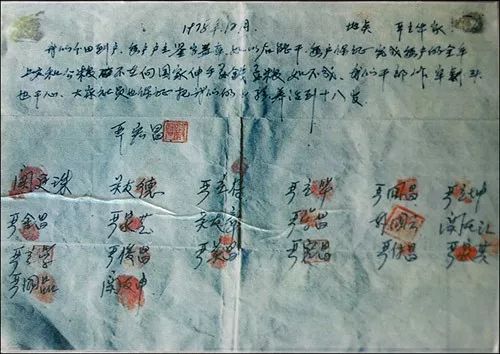 1978年12月. 地点 严立华家
我们分田到户,每户户主签字盖章,如以后能干,每户保证完成每户的全年
上交和公粮不在向国家伸手要钱要粮,如不成,我们干部作牢刹头
也干心,大家社员也保证把我们的小孩养活到十八岁
严宏昌
关廷珠 关友德 严立符 严立华 严国昌 严立坤
严金昌 严家芝 关友章 严学昌 韩国云 关友江
严立学 严俊昌 严美昌 严宏昌 严付昌 严家其
严国品 关友申